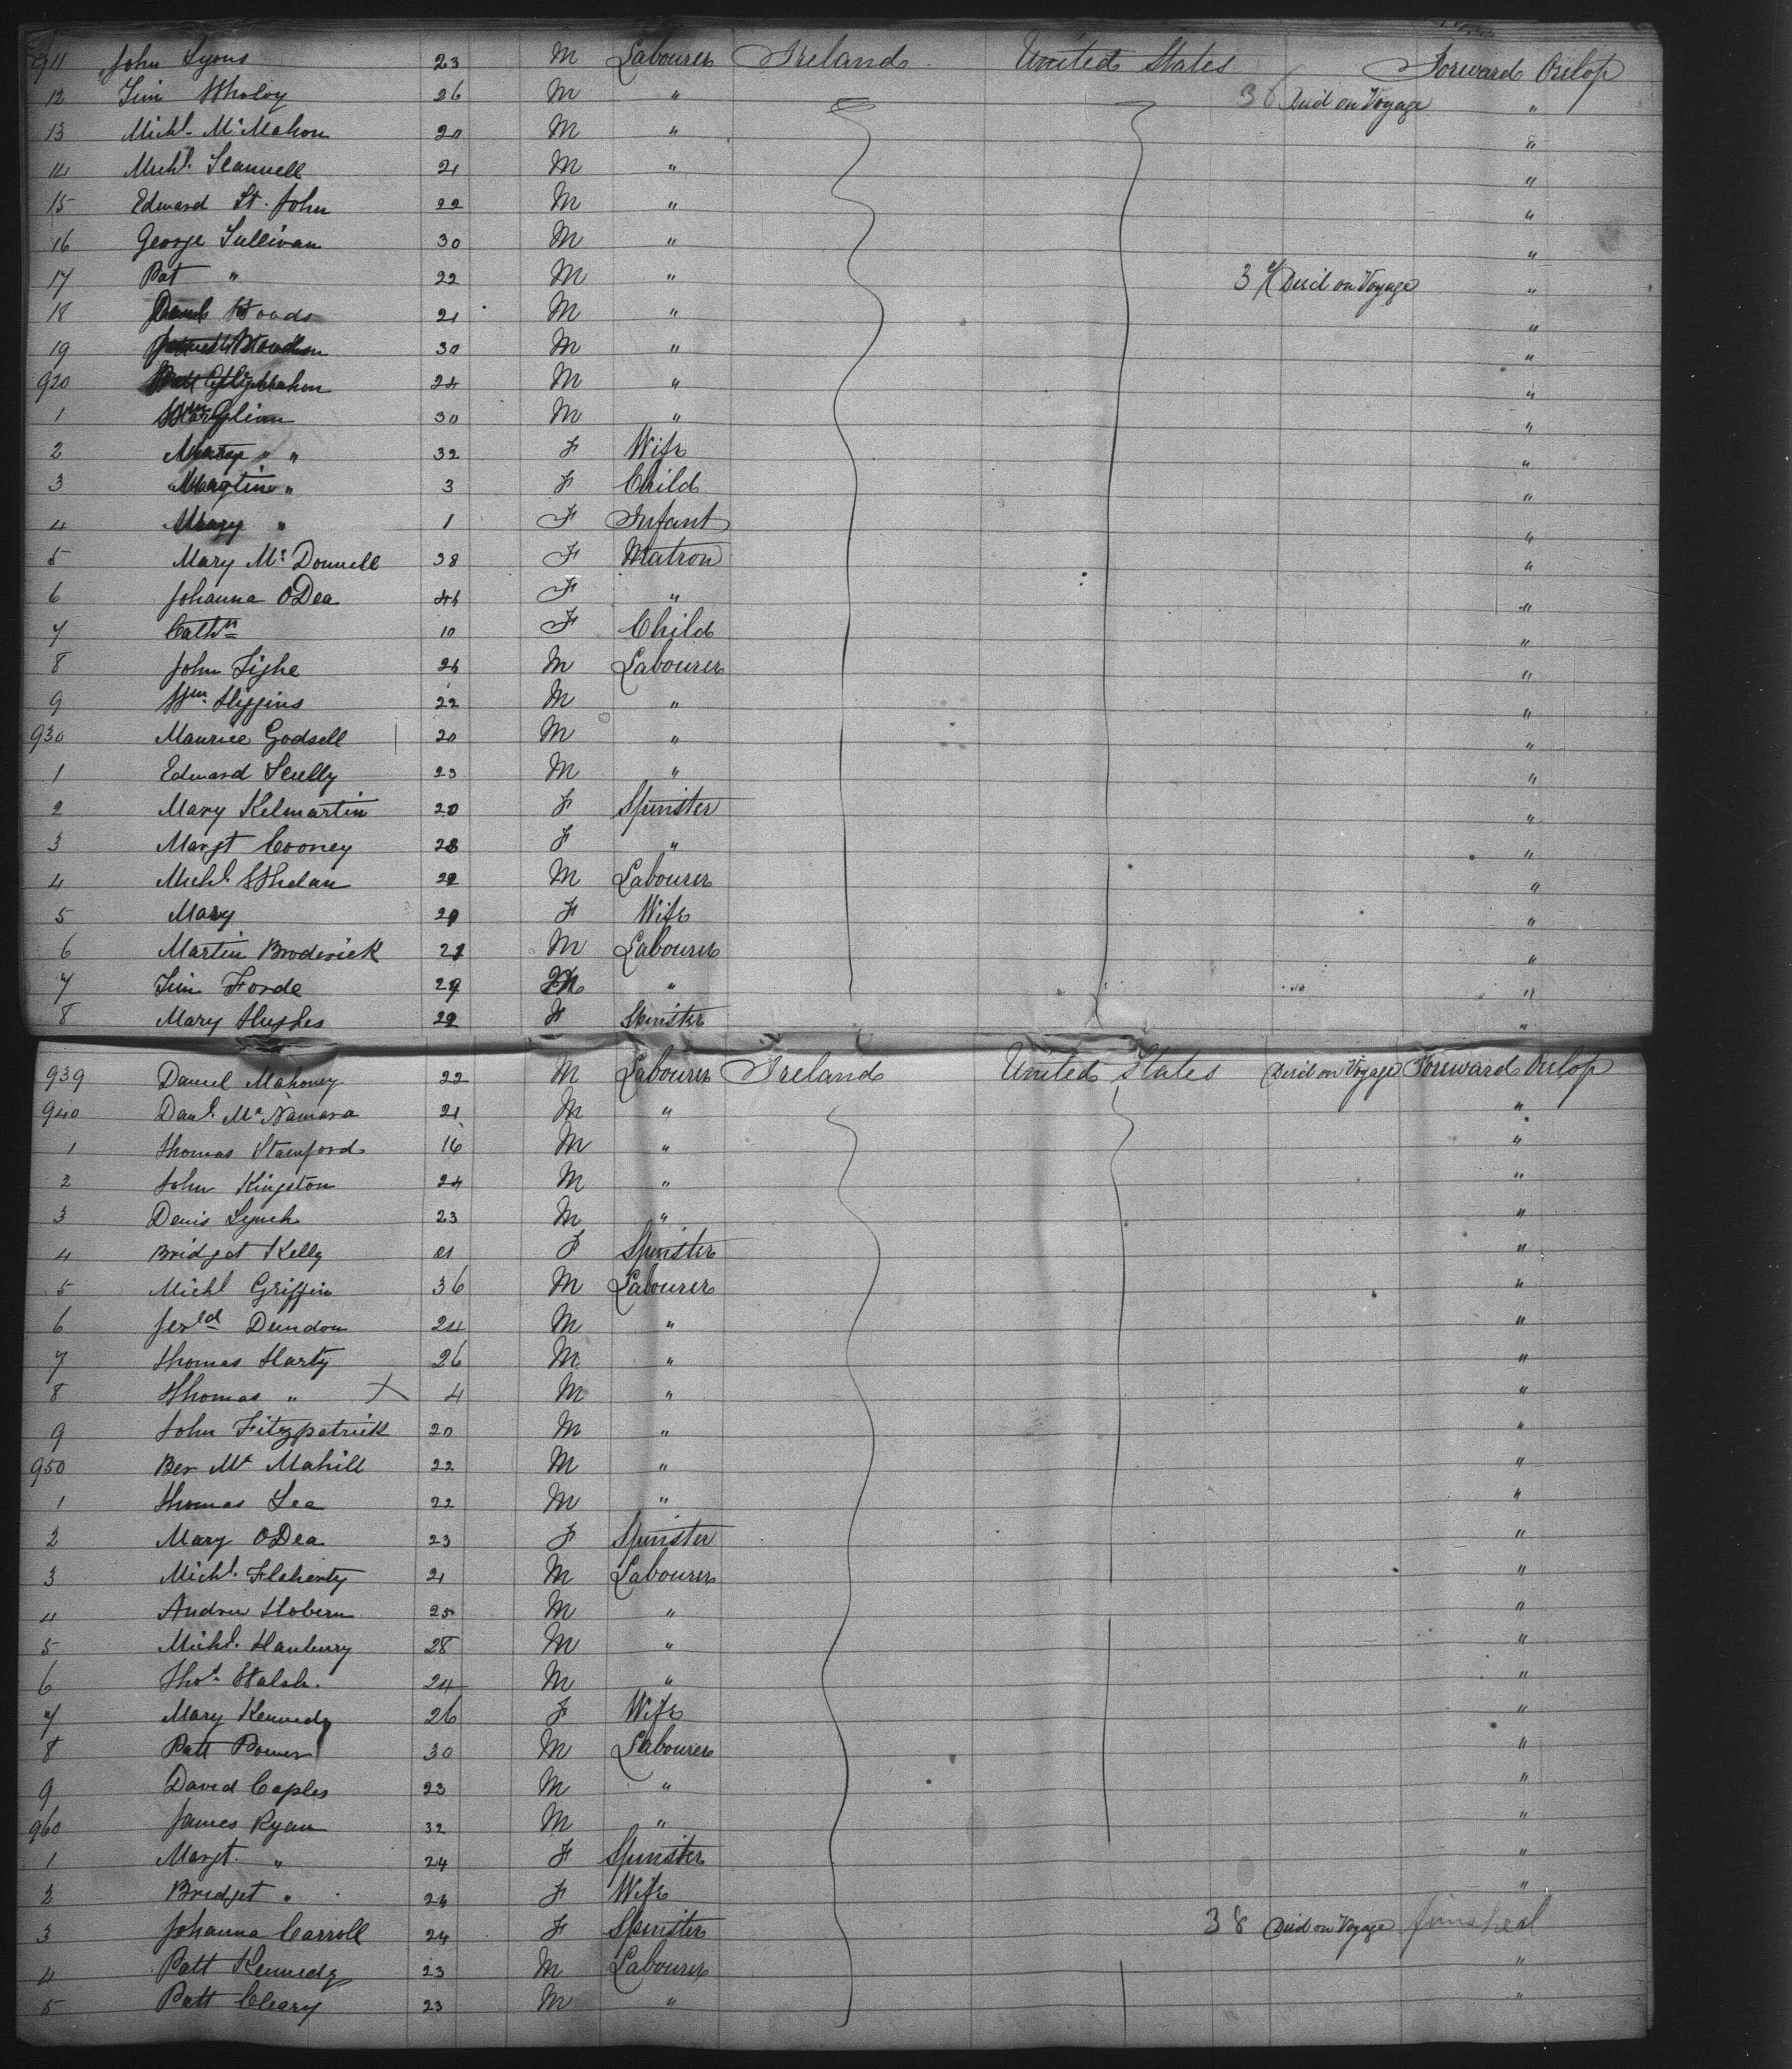 911 John Lyons 23 M Labourer Ireland United States Forward Orlop
12 Tim 26 M " 36 Died on Voyage "
13 Michl. McMahon 20 M " "
14 Michl. Scannell 21 M " "
15 Edward St. John 22 M " "
16 George Sullivan 30 M " "
17 Pat " 22 M " 37 Died on Voyage "
18 Woods 21 M " "
19 30 M " "
920 24 M " "
1 30 M " "
2 Mary " 32 F Wife "
3 Martin " 3 F Child "
4 Mary " 1 F Infant "
5 Mary McDonnell 38 F Matron "
6 Johanna ODea 46 F " "
7 Cathn 10 F Child "
8 John Tighe 26 M Labourer "
9 Wm. Higgins 22 M " "
930 Maurice Godsell 20 M " "
1 Edward Scully 23 M " "
2 Mary Kelmartin 20 F Spinster "
3 Margt Cooney 28 F " "
4 Michl. Whelan 22 M Labourer "
5 Mary 29 F Wife "
6 Martin Broderick 21 M Labourer "
7 Tim Forde 29 M " "
8 Mary Hughes 22 F Spinster "
939 Daniel Mahoney 22 M Labourer Ireland United States Died on Voyage Forward Orlop
940 Danl. McNamara 21 M " "
1 Thomas Stamford 16 M " "
2 John Kingston 24 M " "
3 Denis Lynch 23 M " "
4 Bridget Kelly 21 F Spinster "
5 Michl Griffin 36 M Labourer "
6 Jerld Dundon 24 M " "
7 Thomas Harty 26 M " "
8 Thomas " X 4 M " "
9 John Fitzpatrick 20 M " "
950 Ber Mc Mahill 22 M " "
1 Thomas Lea 22 M " "
2 Mary ODea 23 F Spinster "
3 Michl. Flaherty 21 M Labourer "
4 Andrew Hobern 25 M " "
5 Michl. Hanbury 28 M " "
6 Thos. Walsh. 24 M " "
7 Mary Kennedy 26 F Wife "
8 Patt Power 30 M Labourer "
9 David Caples 23 M " "
960 James Ryan 32 M " "
1 Margt. " 24 F Spinster "
2 Bridget " 24 F Wife "
3 Johanna Carroll 24 F Spinster 38 Died on Voyage
4 Patt Kennedy 23 M Labourer "
5 Patt Cleary 23 M " "